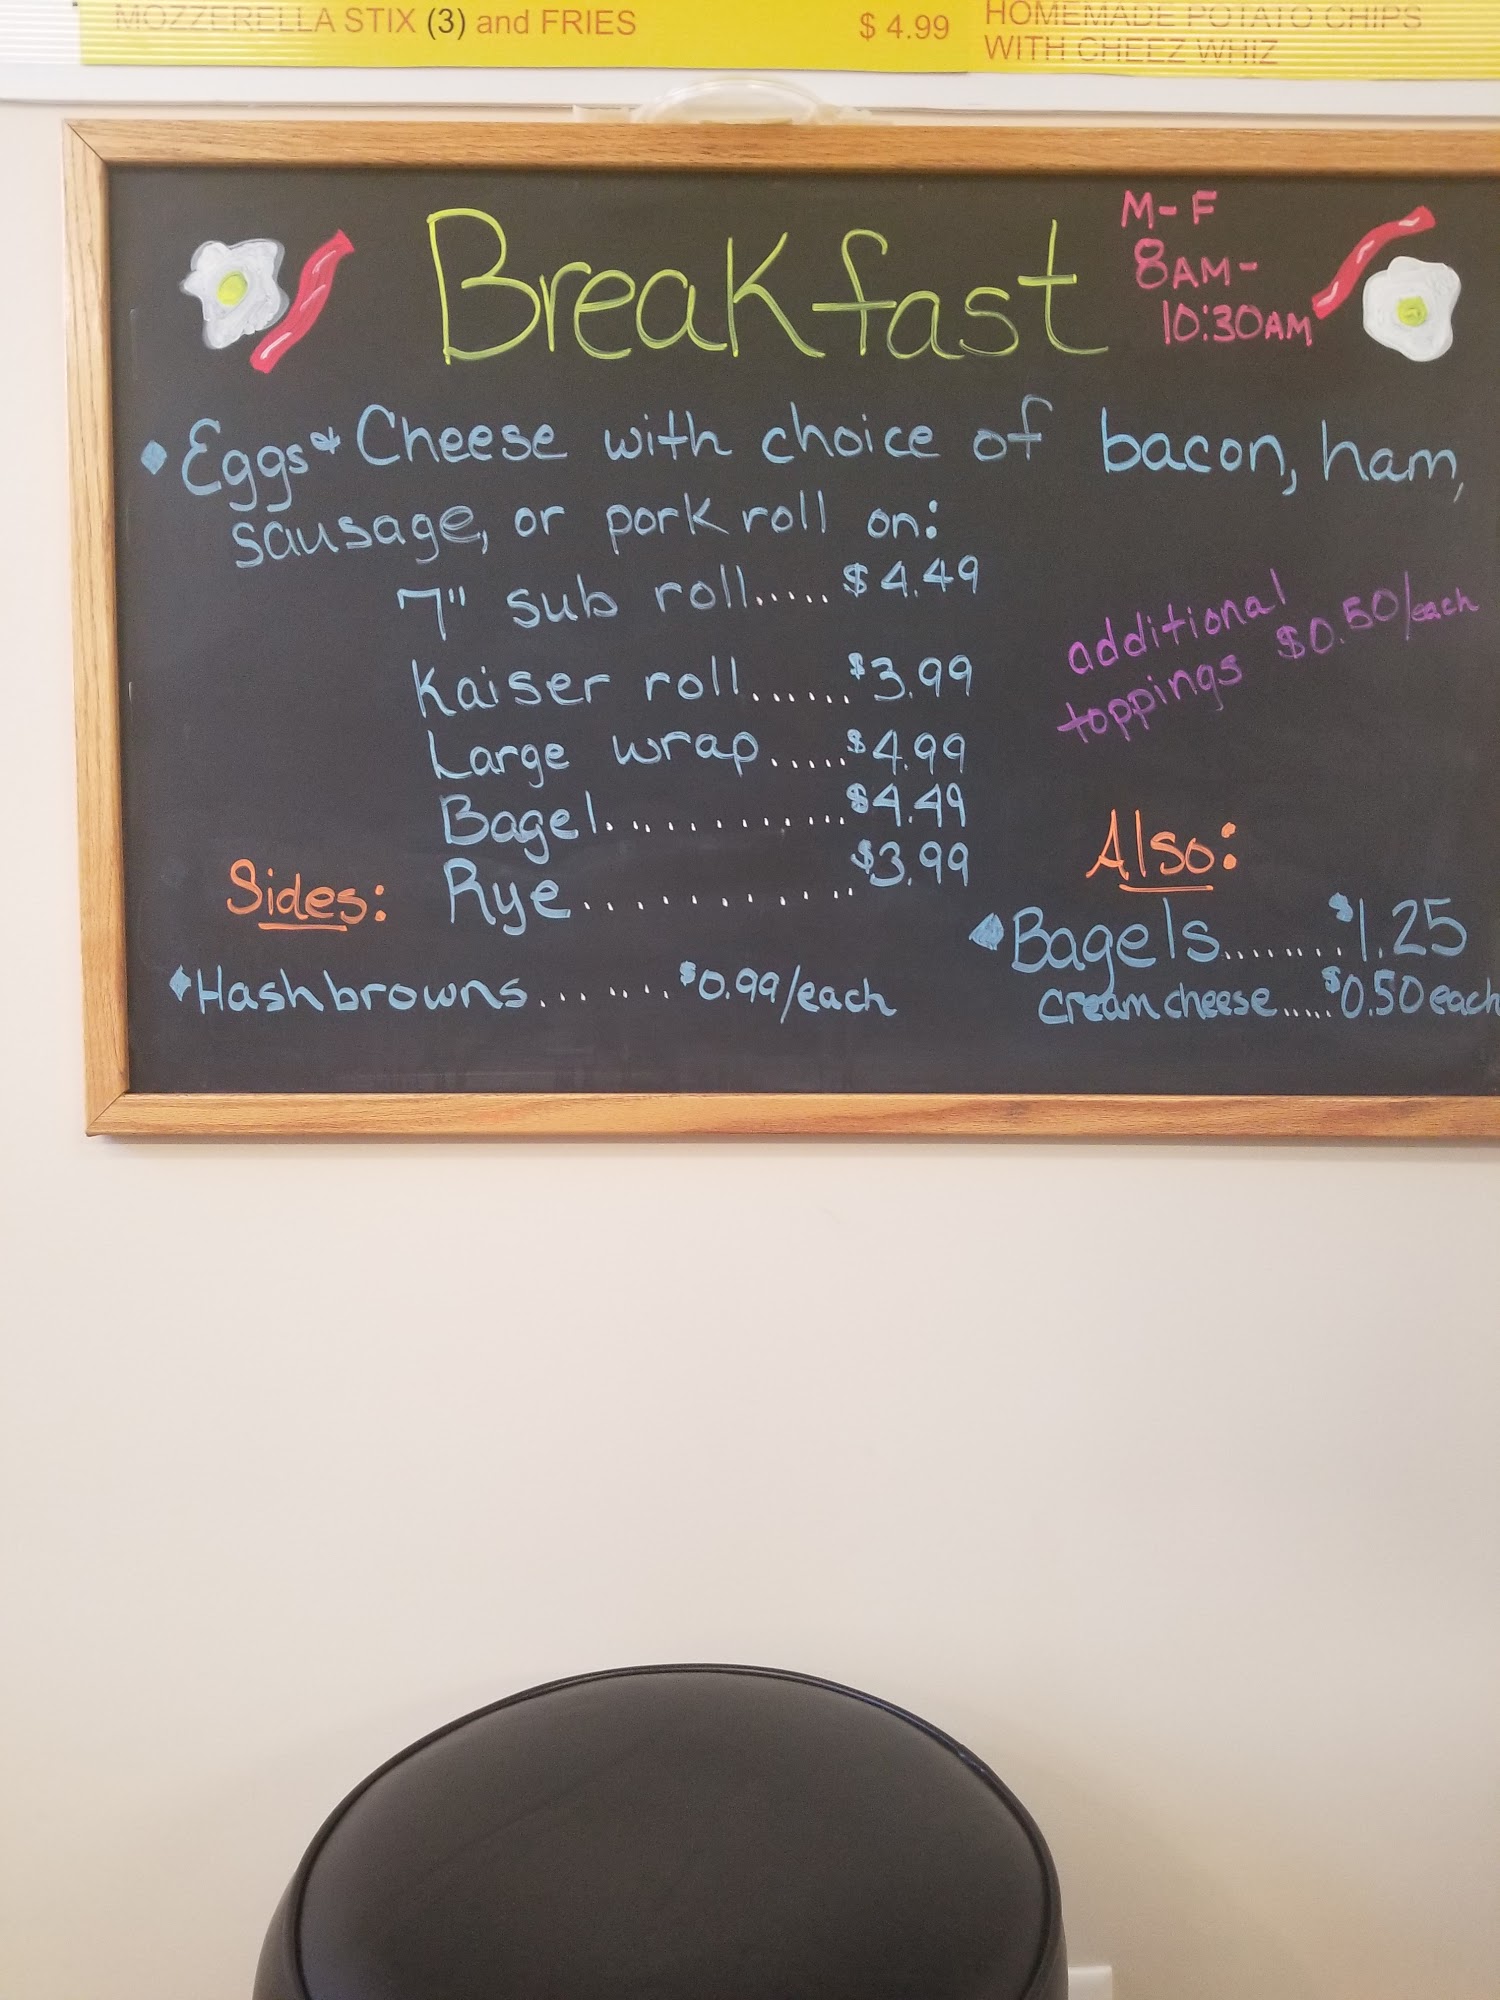 MOZZERELLA STIX (3) and FRIES $ 4.99
HOMEMADE POTATO CHIPS
WITH CHEEZ WHIZ
Breakfast
M-F
8AM-
10:30AM
Eggs & Cheese with choice of bacon, ham,
sausage, or pork roll on:
7" sub roll..... $4.49
Kaiser roll...... $3.99
Large wrap..... $4.99
Bagel............ $4.49
Rye........... $3.99
additional
toppings $0.50/each
Sides:
Hashbrowns....... $0.99/each
Also:
Bagels........ $1.25
cream cheese..... $0.50 each